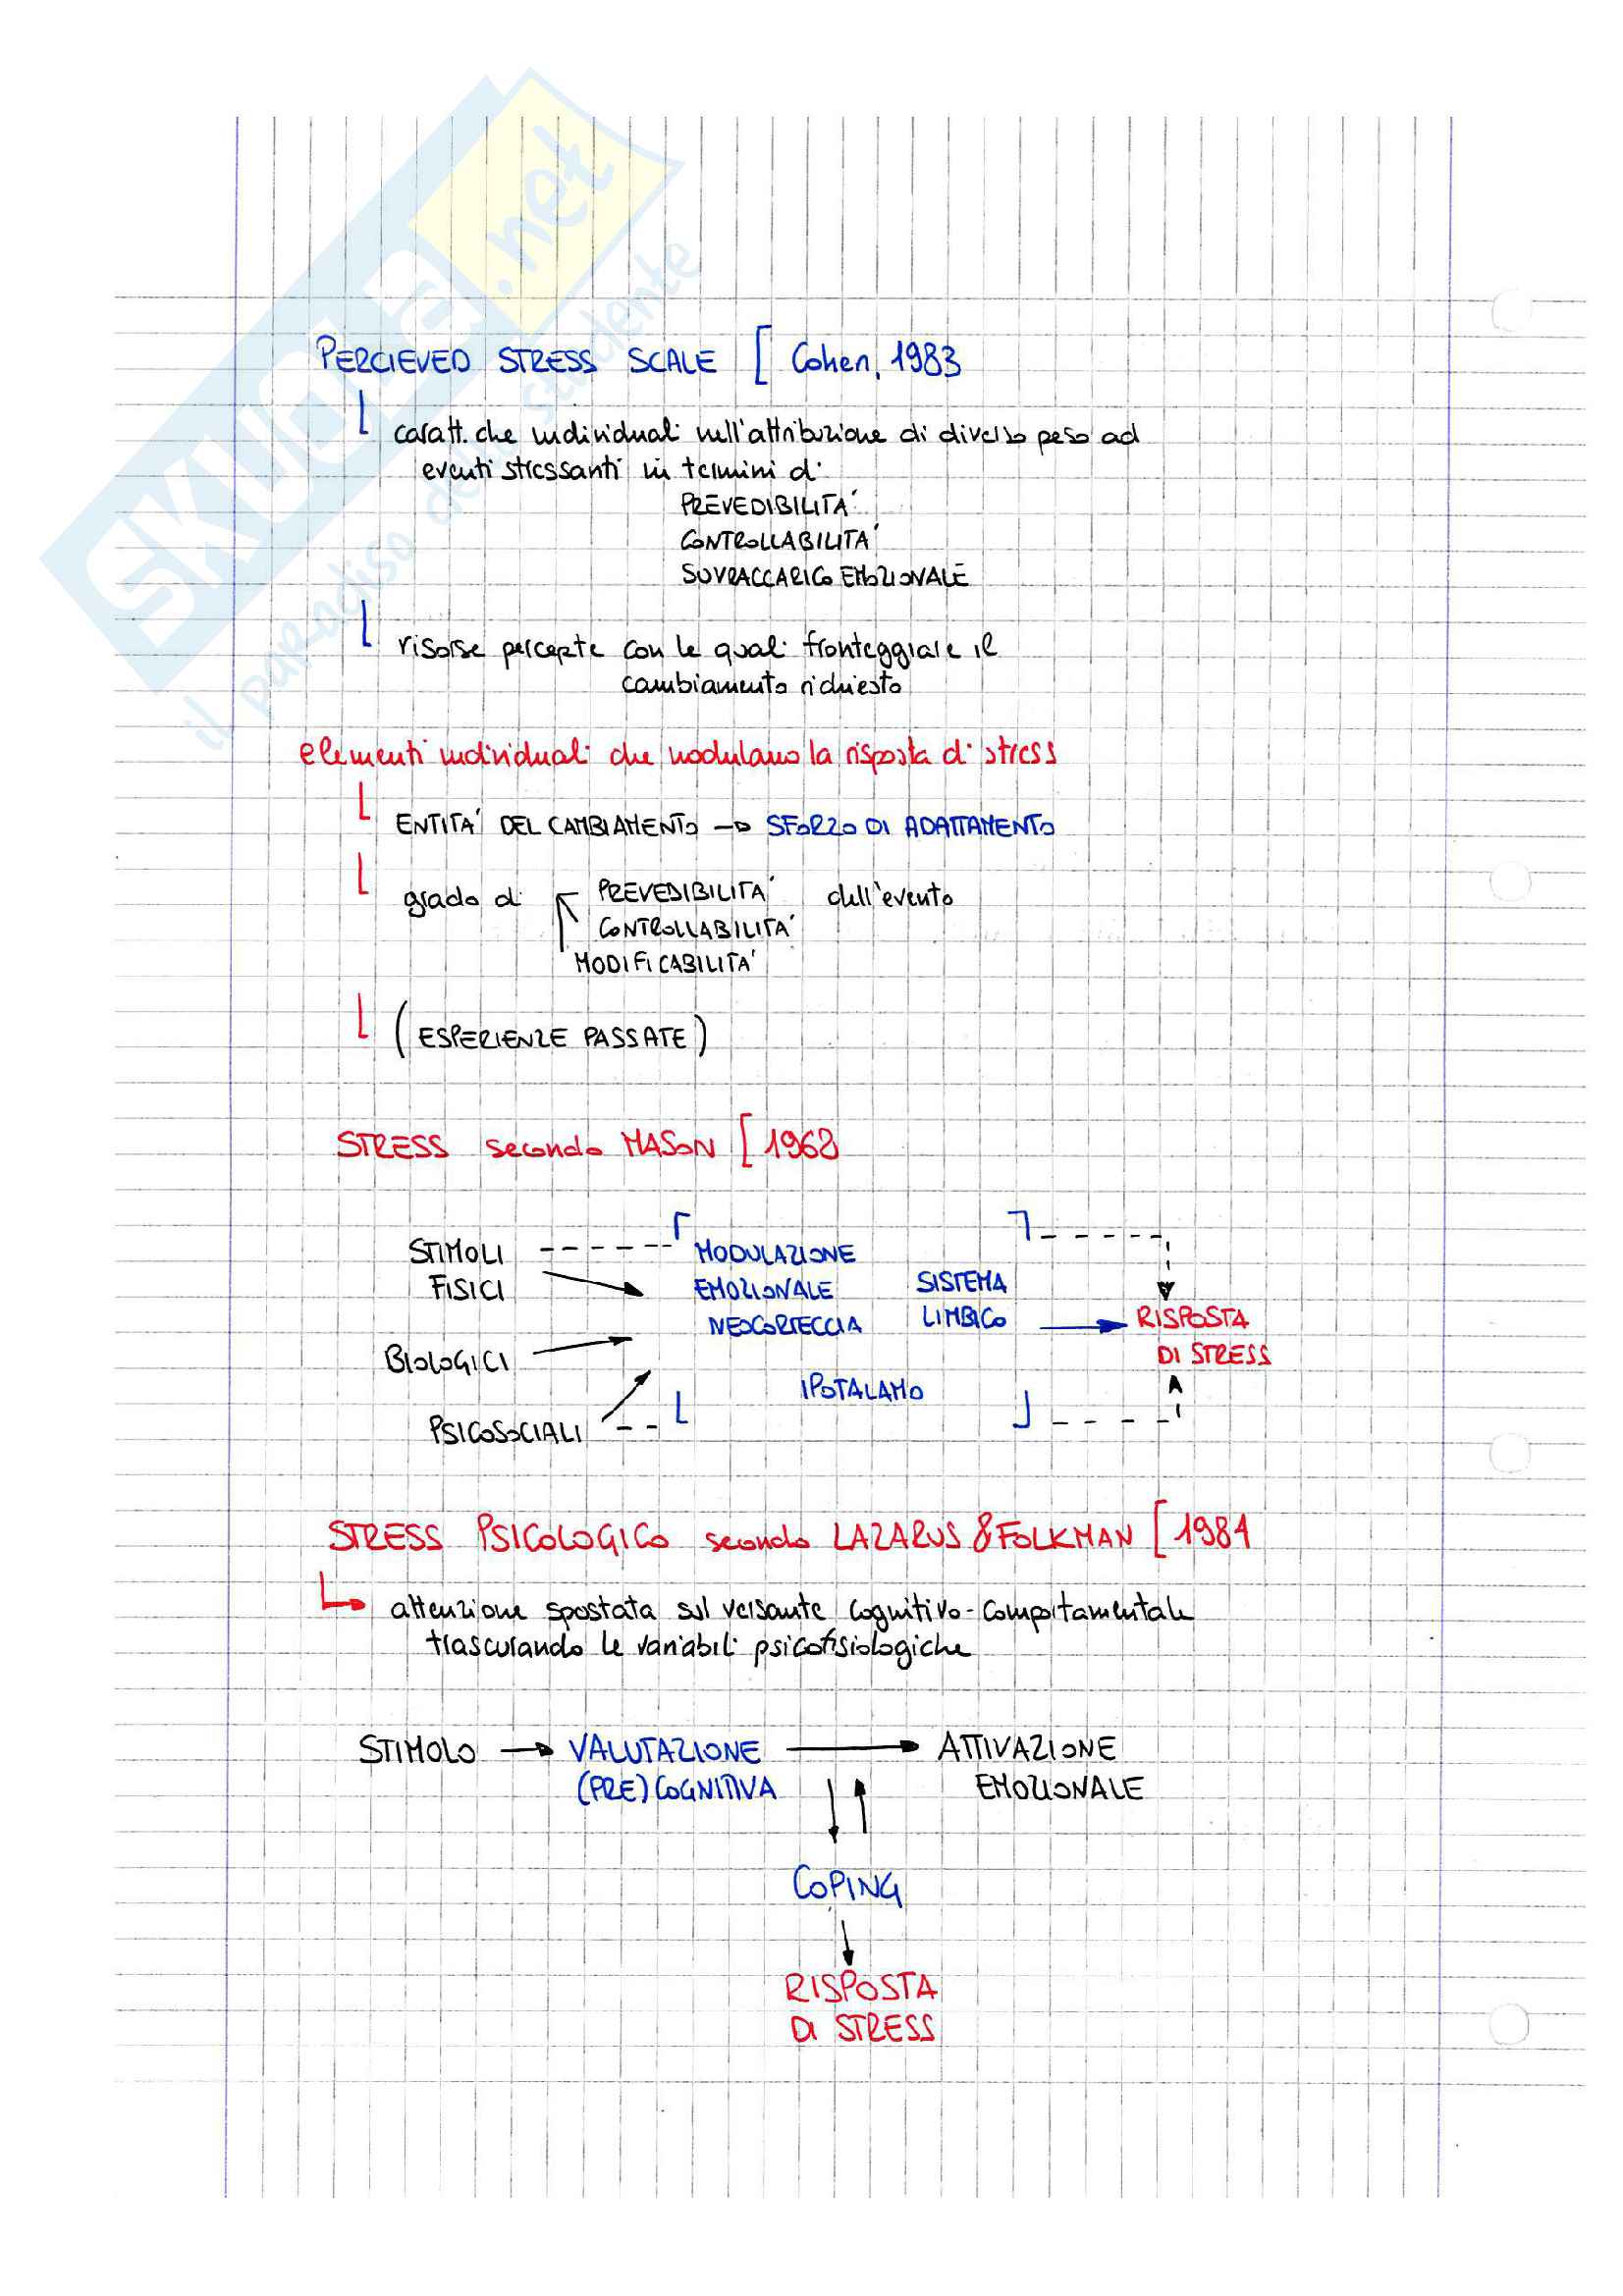 SKUOLA.net
il paradiso dello studente
PERCIEVED STRESS SCALE [ Cohen, 1983
caratt. che individuali nell'attribuzione di diverso peso ad
eventi stressanti in termini di
PREVEDIBILITA'
CONTROLLABILITA'
SOVRACCARICO EMOZIONALE
risorse percepite con le quali fronteggiare il
cambiamento richiesto
elementi individuali che modulano la risposta di stress
ENTITA' DEL CAMBIAMENTO → SFORZO DI ADATTAMENTO
grado di PREVEDIBILITA' dell'evento
CONTROLLABILITA'
MODIFICABILITA'
(ESPERIENZE PASSATE)
STRESS secondo MASON [ 1968
STIMOLI MODULAZIONE
FISICI EMOZIONALE SISTEMA
NEOCORTECCIA LIMBICO → RISPOSTA
BIOLOGICI DI STRESS
IPOTALAMO
PSICOSOCIALI
STRESS PSICOLOGICO secondo LAZARUS & FOLKMAN [ 1984
attenzione spostata sul versante cognitivo-comportamentale
trascurando le variabili psicofisiologiche
STIMOLO → VALUTAZIONE → ATTIVAZIONE
(PRE) COGNITIVA EMOZIONALE
COPING
RISPOSTA
DI STRESS